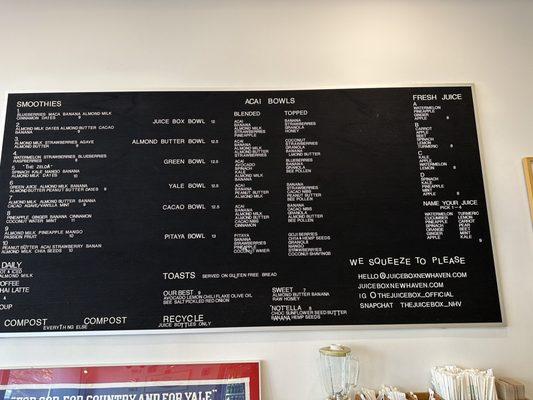 SMOOTHIES
1
BLUEBERRIES MACA BANANA ALMOND MILK
CINNAMON DATES 9
2
ALMOND MILK DATES ALMOND BUTTER CACAO
BANANA 9
3
ALMOND MILK STRAWBERRIES AGAVE
ALMOND BUTTER
4
WATERMELON STRAWBERRIES BLUEBERRIES
RASPBERRIES
5 "THE ZELDA"
SPINACH KALE MANGO BANANA
ALMOND MILK DATES
6
GREEN JUICE ALMOND MILK BANANA
ALMOND BUTTER PEANUT BUTTER DATES 9
7
ALMOND MILK ALMOND BUTTER BANANA
CACAO AGAVE/VANILLA MINT
8
PINEAPPLE GINGER BANANA CINNAMON
COCONUT WATER MINT 11
9
ALMOND MILK PINEAPPLE MANGO
PASSION FRUIT
10
PEANUT BUTTER ACAI STRAWBERRY BANANA
ALMOND MILK CHIA SEEDS
DAILY
HOT & ICED
ALMOND MILK
COFFEE
CHAI LATTE
4
SOUP
COMPOST COMPOST
EVERYTHING ELSE
ACAI BOWLS
BLENDED TOPPED
JUICE BOX BOWL 12
ACAI
BANANA
ALMOND MILK
STRAWBERRIES
PINEAPPLE
BANANA
STRAWBERRIES
GRANOLA
HONEY
ALMOND BUTTER BOWL 12.5
ACAI
BANANA
ALMOND MILK
ALMOND BUTTER
STRAWBERRIES
COCONUT
STRAWBERRIES
GRANOLA
BANANA
ALMOND BUTTER
GREEN BOWL 12.5
ACAI
AVOCADO
SPINACH
KALE
ALMOND MILK
BANANA
BLUEBERRIES
BANANA
GRANOLA
BEE POLLEN
YALE BOWL 12.5
ACAI
BANANA
PEANUT BUTTER
ALMOND MILK
BANANA
STRAWBERRIES
GRANOLA
PEANUT BUTTER
BEE POLLEN
CACAO BOWL 12.5
ACAI
BANANA
ALMOND MILK
STRAWBERRIES
ALMOND BUTTER
CINNAMON
BANANA
CACAO NIBS
GRANOLA
ALMOND BUTTER
BEE POLLEN
PITAYA BOWL 13
PITAYA
BANANA
STRAWBERRIES
PINEAPPLE
COCONUT WATER
GOJI BERRIES
CHIA & HEMP SEEDS
GRANOLA
MANGO
STRAWBERRIES
COCONUT SHAVINGS
TOASTS SERVED ON GLUTEN FREE BREAD
OUR BEST 9
AVOCADO LEMON CHILI FLAKE OLIVE OIL
SEE SALT PICKLED RED ONION
SWEET 7
ALMOND BUTTER BANANA
RAW HONEY
"NOTELLA 9
CHOC SUNFLOWER SEED BUTTER
BANANA HEMP SEEDS
RECYCLE
JUICE BOTTLES ONLY
FRESH JUICE
A
WATERMELON
PINEAPPLE
GINGER
APPLE 8
B
CARROT
APPLE
BEET
LEMON
TURMERIC 8
C
KALE
APPLE
WATERMELON
LEMON
D
SPINACH
KALE
PINEAPPLE
MINT
APPLE 8
NAME YOUR JUICE
PICK 1-4
WATERMELON TURMERIC
CUCUMBER LEMON
PINEAPPLE CARROT
SPINACH PEAR
ORANGE BEET
GINGER MINT
APPLE KALE 9
WE SQUEEZE TO PLEASE
HELLO@JUICEBOXNEWHAVEN.COM
JUICEBOXNEWHAVEN.COM
IG @THEJUICEBOX_OFFICIAL
SNAPCHAT THEJUICEBOX_NHV
FOR GOD, FOR COUNTRY AND FOR YALE